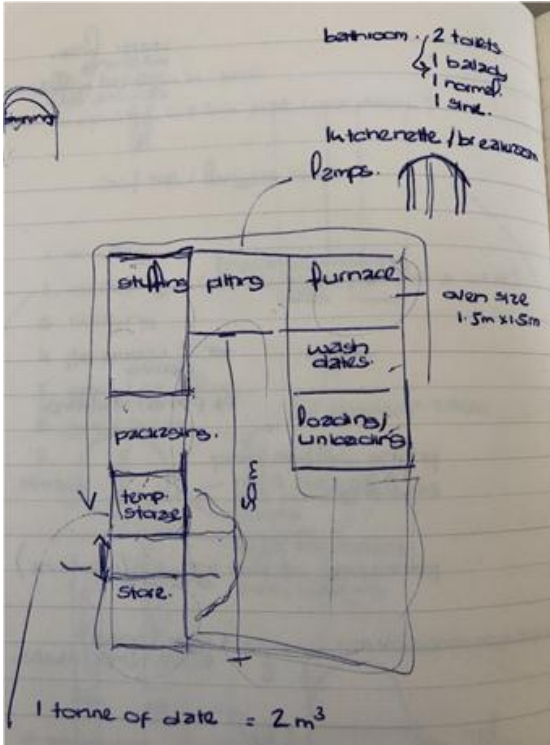 bathroom. 2 toilets
1 balady
1 normal.
1 sink.
kitchenette / breakroom
Ramps.
stuffing
pitting
furnace
oven size
1.5m x 1.5m
wash
dates.
packaging.
loading/
unloading
temp.
storage
50m
store.
1 tonne of date = 2 m³